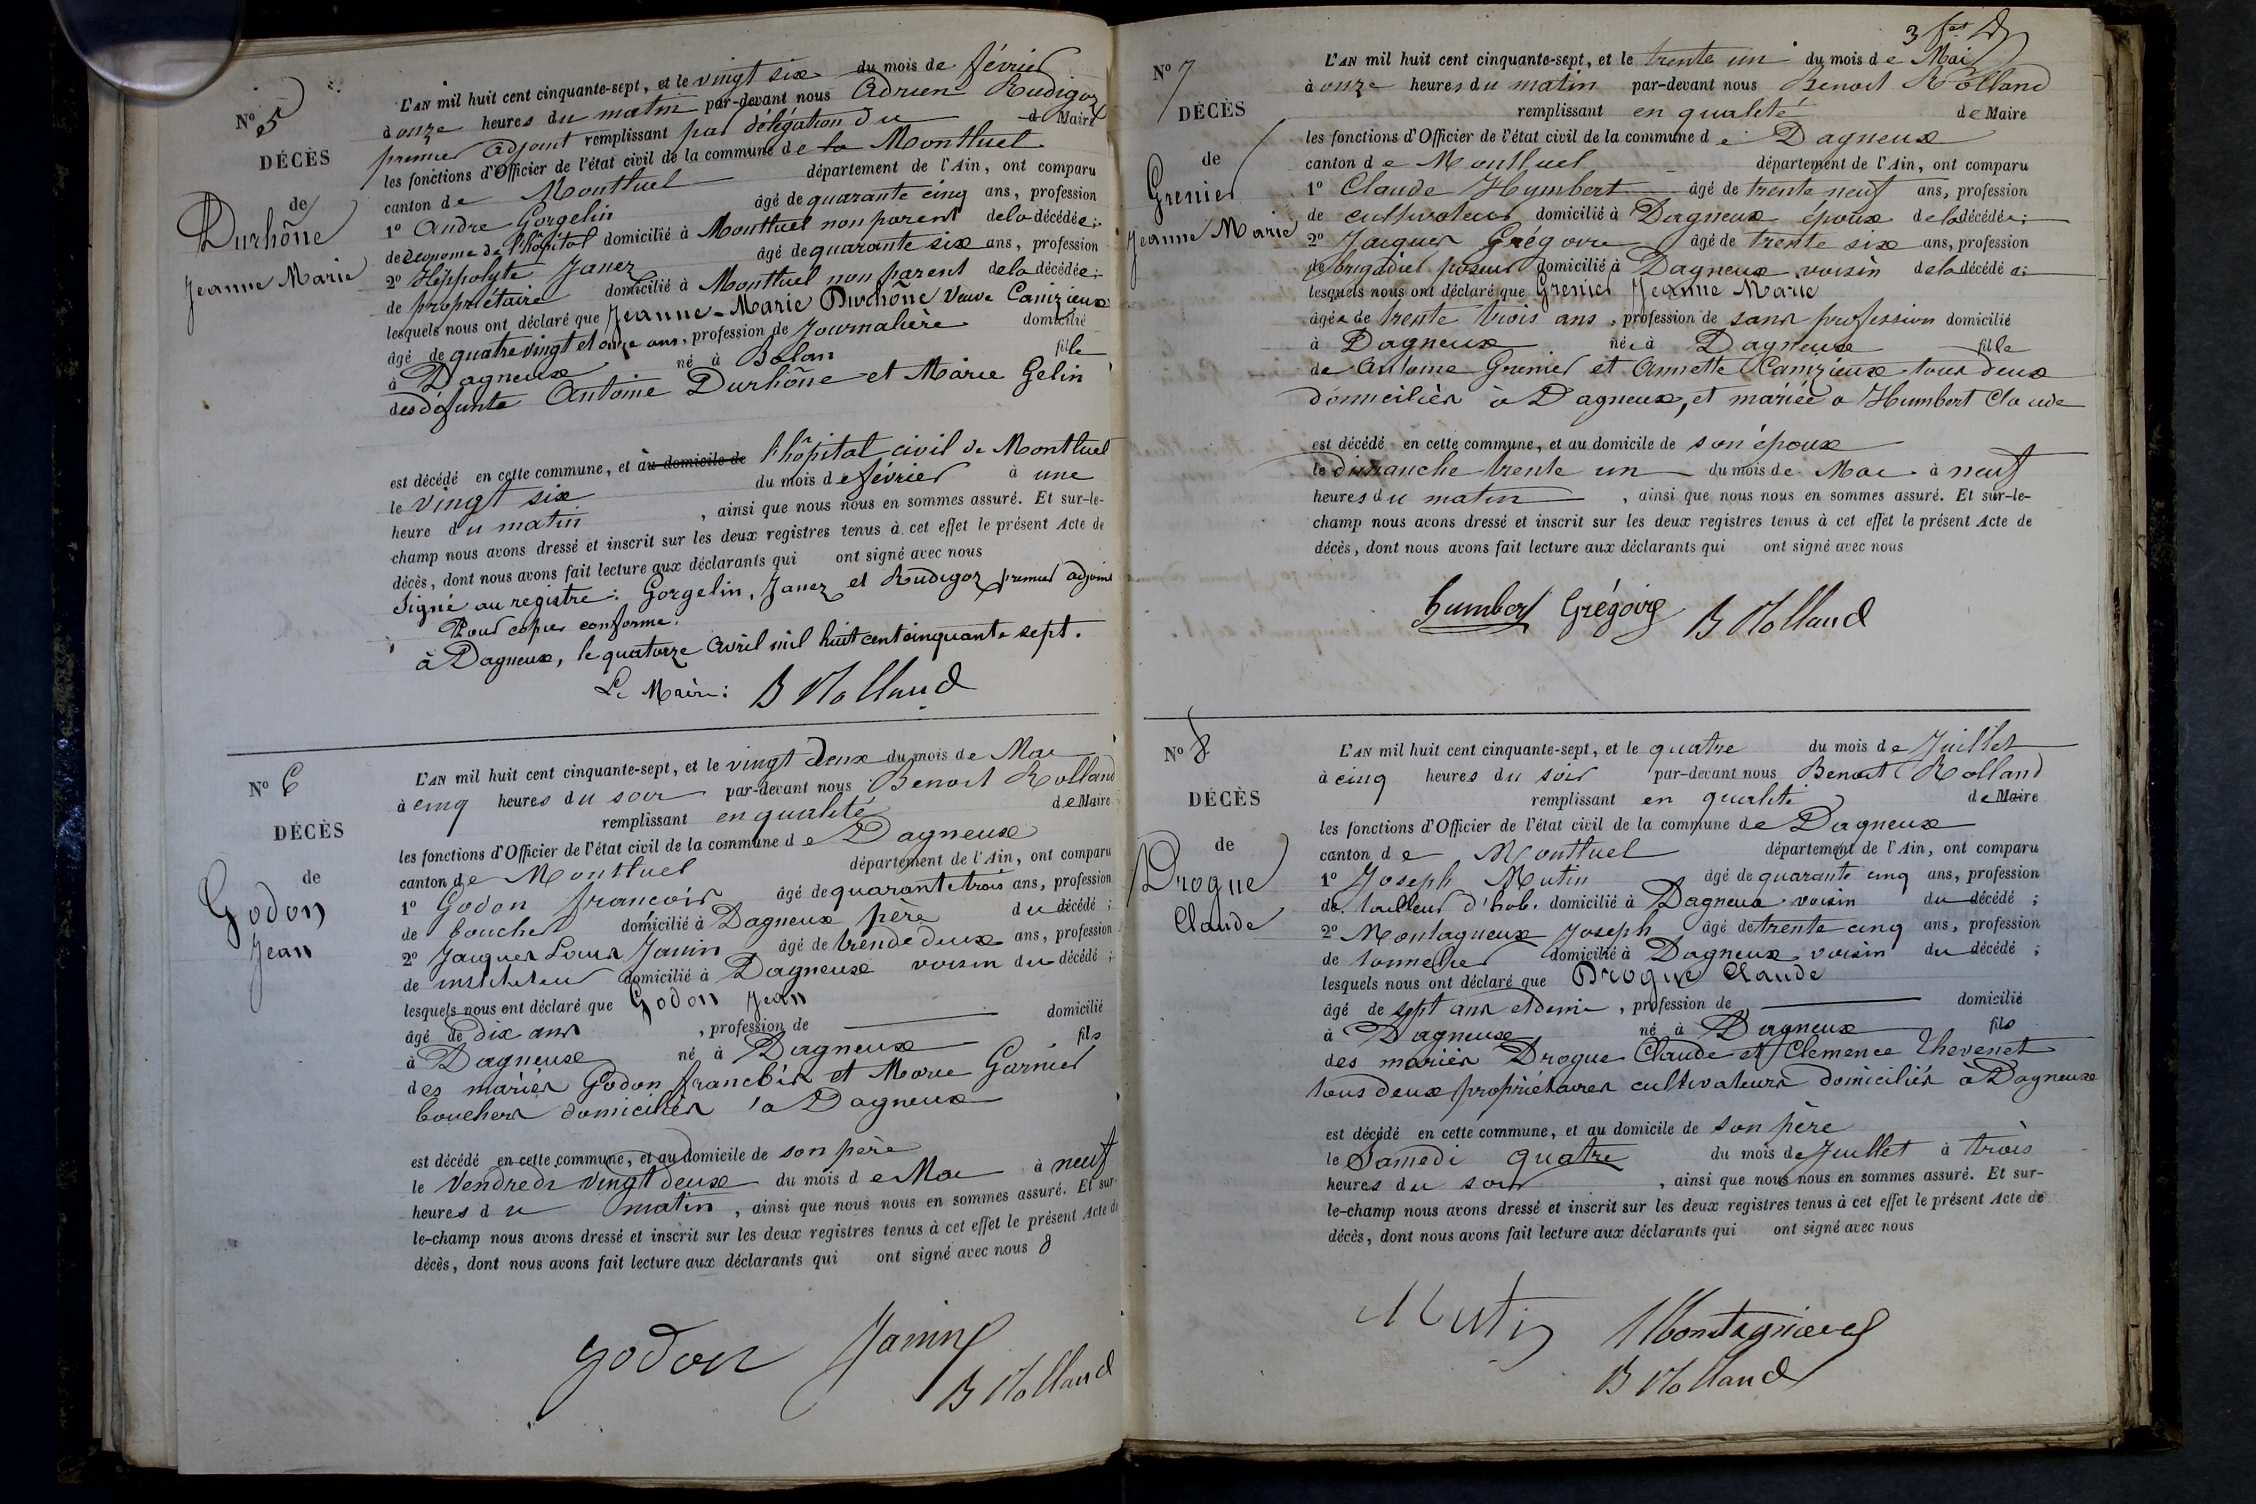 N° 5
DÉCÈS
de
Durhône
Jeanne Marie
L'AN mil huit cent cinquante-sept, et le vingt six du mois de février
à onze heures du matin par-devant nous Adrien Rudigoz
premier adjoint remplissant par délégation du d Maire
les fonctions d'Officier de l'état civil de la commune de la Montluel
canton de Montluel département de l'Ain, ont comparu
1° André Gorgelin âgé de quarante cinq ans, profession
de économe de l'hôpital domicilié à Montluel non parent de la décédée;
2° Hippolyte Janez âgé de quarante six ans, profession
de propriétaire domicilié à Montluel non parent de la décédée;
lesquels nous ont déclaré que Jeanne-Marie Durhône Veuve Camzieux
âgé de quatre vingt et onze ans, profession de Journalière domicilié
à Dagneux né à Balan fille
des défunts Antoine Durhône et Marie Gelin
est décédé en cette commune, et au domicile de l'hôpital civil de Montluel
le vingt six du mois de février à une
heure du matin, ainsi que nous nous en sommes assuré. Et sur-le-
champ nous avons dressé et inscrit sur les deux registres tenus à cet effet le présent Acte de
décès, dont nous avons fait lecture aux déclarants qui ont signé avec nous
Signé au registre: Gorgelin, Janez et Rudigoz premier adjoint
Pour copie conforme:
à Dagneux, le quatorze avril mil huit cent cinquante sept.
Le Maire: B Rolland
N° 6
DÉCÈS
de
Godon
Jean
L'AN mil huit cent cinquante-sept, et le vingt deux du mois de Mai
à cinq heures du soir par-devant nous Benoit Rolland
remplissant en qualité de Maire
les fonctions d'Officier de l'état civil de la commune de Dagneux
canton de Montluel département de l'Ain, ont comparu
1° Godon françois âgé de quarante trois ans, profession
de boucher domicilié à Dagneux père du décédé;
2° Jacques Louis Janin âgé de trende deux ans, profession
de instituteur domicilié à Dagneux voisin du décédé;
lesquels nous ont déclaré que Godon Jean
âgé de dix ans, profession de domicilié
à Dagneux né à Dagneux fils
des mariés Godon françois et Marie Garnier
bouchers domiciliés à Dagneux
est décédé en cette commune, et au domicile de son père
le Vendredi vingt deux du mois de Mai à neuf
heures du matin, ainsi que nous nous en sommes assuré. Et sur-
le-champ nous avons dressé et inscrit sur les deux registres tenus à cet effet le présent Acte de
décès, dont nous avons fait lecture aux déclarants qui ont signé avec nous
Godon Janin
B Rolland
N° 7
DÉCÈS
de
Grenier
Jeanne Marie
L'AN mil huit cent cinquante-sept, et le trente un du mois de Mai
à onze heures du matin par-devant nous Benoit Rolland
remplissant en qualité de Maire
les fonctions d'Officier de l'état civil de la commune de Dagneux
canton de Montluel département de l'Ain, ont comparu
1° Claude Humbert âgé de trente neuf ans, profession
de cultivateur domicilié à Dagneux époux de la décédée;
2° Jacques Grégoire âgé de trente six ans, profession
de brigadier poseur domicilié à Dagneux voisin de la décédée;
lesquels nous ont déclaré que Grenier Jeanne Marie
âgée de trente trois ans, profession de sans profession domicilié
à Dagneux née à Dagneux fille
de Antoine Grenier et Annette Camzieux tous deux
domiciliés à Dagneux, et mariée à Humbert Claude
est décédé en cette commune, et au domicile de son époux
le dimanche trente un du mois de Mai à neuf
heures du matin, ainsi que nous nous en sommes assuré. Et sur-le-
champ nous avons dressé et inscrit sur les deux registres tenus à cet effet le présent Acte de
décès, dont nous avons fait lecture aux déclarants qui ont signé avec nous
humbert Grégoire B Rolland
N° 8
DÉCÈS
de
Drogue
Claude
L'AN mil huit cent cinquante-sept, et le quatre du mois de Juillet
à cinq heures du soir par-devant nous Benoit Rolland
remplissant en qualité de Maire
les fonctions d'Officier de l'état civil de la commune de Dagneux
canton de Montluel département de l'Ain, ont comparu
1° Joseph Mutin âgé de quarante cinq ans, profession
de tailleur d'hab. domicilié à Dagneux voisin du décédé;
2° Montagneux Joseph âgé de trente cinq ans, profession
de tonnelier domicilié à Dagneux voisin du décédé;
lesquels nous ont déclaré que Drogue Claude
âgé de sept ans et demi, profession de domicilié
à Dagneux né à Dagneux fils
des mariés Drogue Claude et Clemence Thevenet
tous deux propriétaires cultivateurs domiciliés à Dagneux
est décédé en cette commune, et au domicile de son père
le Samedi quatre du mois de Juillet à trois
heures du soir, ainsi que nous nous en sommes assuré. Et sur-
le-champ nous avons dressé et inscrit sur les deux registres tenus à cet effet le présent Acte de
décès, dont nous avons fait lecture aux déclarants qui ont signé avec nous
Mutin Montagneux
B Rolland